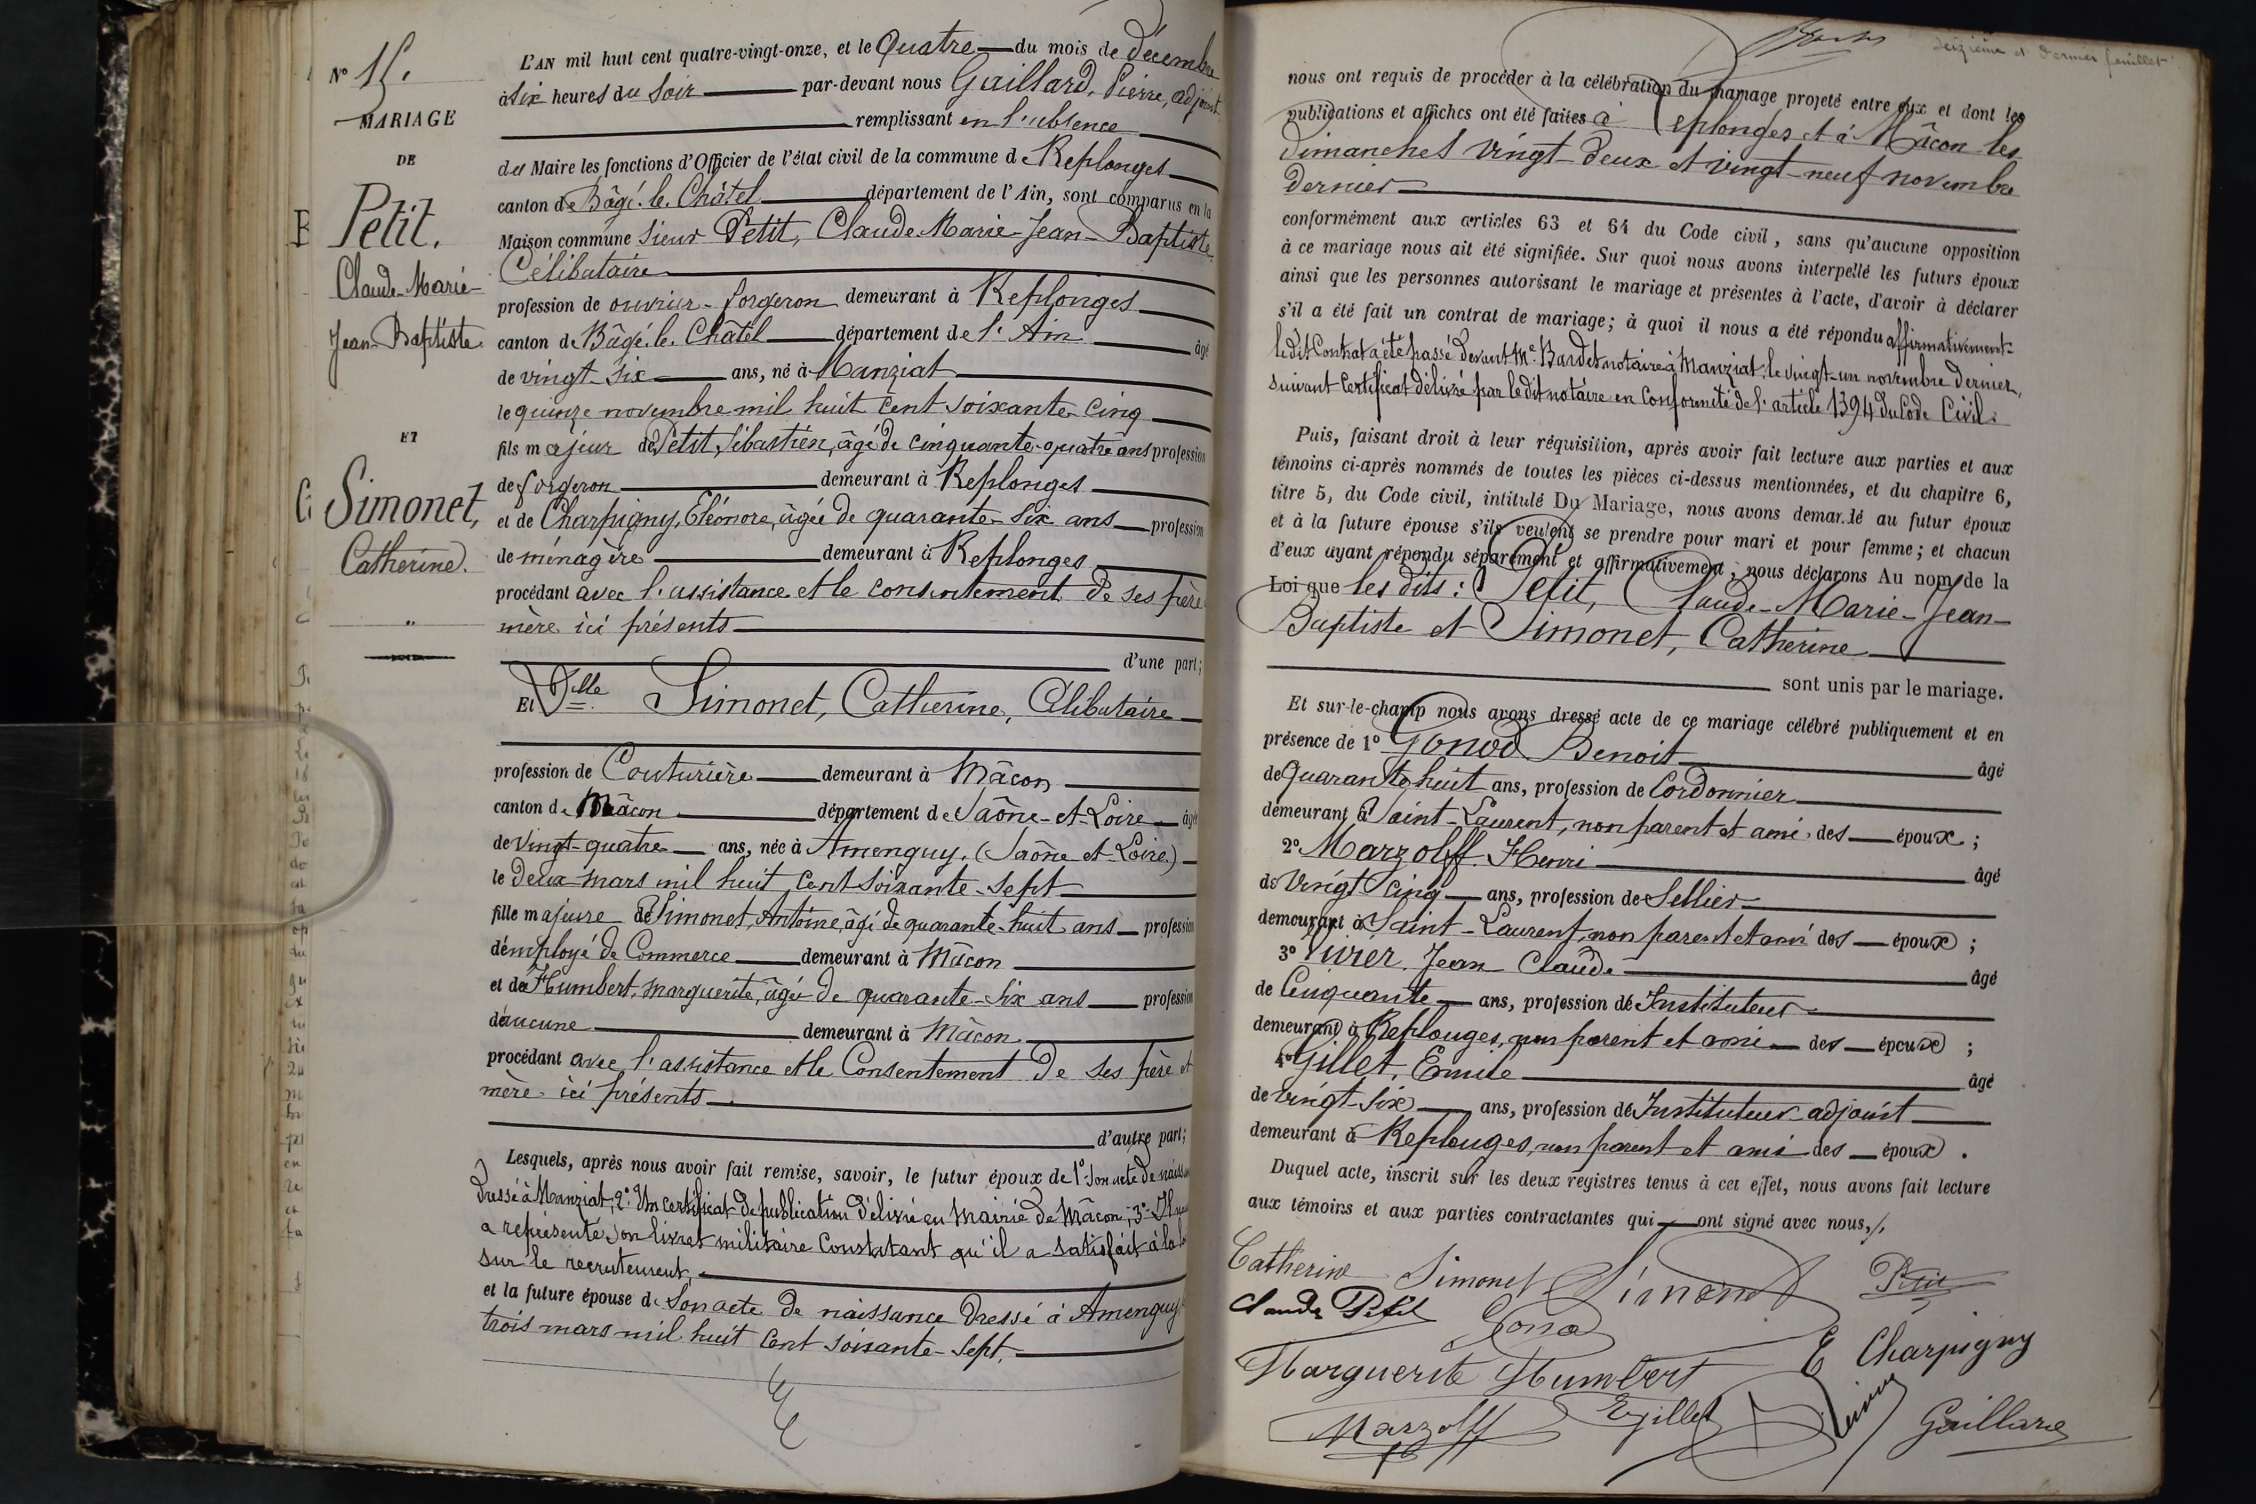 N° 15.
MARIAGE
DE
Petit,
Claude-Marie-
Jean-Baptiste.
ET
Simonet,
Catherine.
L'AN mil huit cent quatre-vingt-onze, et le Quatre du mois de décembre
à six heures du soir par-devant nous Gaillard, Pierre, adjoint
remplissant en l'absence
du Maire les fonctions d'Officier de l'état civil de la commune de Replonges
canton de Bâgé-le-Châtel département de l'Ain, sont comparus en la
Maison commune sieur Petit, Claude-Marie-Jean-Baptiste,
Célibataire
profession de ouvrier-forgeron demeurant à Replonges
canton de Bâgé-le-Châtel département de l'Ain âgé
de vingt-six ans, né à Manziat
le quinze novembre mil huit cent soixante-cinq
fils majeur de Petit, Sébastien, âgé de cinquante-quatre ans profession
de forgeron demeurant à Replonges
et de Charpigny, Eléonore, âgée de quarante-six ans profession
de ménagère demeurant à Replonges
procédant avec l'assistance et le consentement de ses père
mère ici présents
d'une part;
Et Dlle Simonet, Catherine, Célibataire
profession de Couturière demeurant à Mâcon
canton de Mâcon département de Saône-et-Loire âgé
de vingt-quatre ans, née à Amenguy, (Saône-et-Loire)
le deux mars mil huit cent soixante-sept
fille majeure de Simonet, Antoine, âgé de quarante-huit ans profession
d'employé de Commerce demeurant à Mâcon
et de Humbert, Marguerite, âgée de quarante-six ans profession
de aucune demeurant à Mâcon
procédant avec l'assistance et le Consentement de ses père et
mère ici présents
d'autre part;
Lesquels, après nous avoir fait remise, savoir, le futur époux de 1° Son acte de naiss
dressé à Manziat, 2° Un certificat de publication délivré en Mairie de Mâcon; 3° Il nous
a représenté son livret militaire Constatant qu'il a satisfait à la loi
sur le recrutement,
et la future épouse de Son acte de naissance dressé à Amenguy
trois mars mil huit cent soixante-sept,
seizième et dernier feuillet
nous ont requis de procéder à la célébration du mariage projeté entre eux et dont les
publications et affiches ont été faites à Replonges et à Mâcon les
dimanches vingt-deux et vingt-neuf novembre
dernier
conformément aux articles 63 et 64 du Code civil, sans qu'aucune opposition
à ce mariage nous ait été signifiée. Sur quoi nous avons interpellé les futurs époux
ainsi que les personnes autorisant le mariage et présentes à l'acte, d'avoir à déclarer
s'il a été fait un contrat de mariage; à quoi il nous a été répondu affirmativement-
ledit Contrat a été passé devant Me Bardet notaire à Manziat, le vingt-un novembre dernier,
suivant Certificat délivré par ledit notaire en Conformité de l'article 1394 du Code Civil.
Puis, faisant droit à leur réquisition, après avoir fait lecture aux parties et aux
témoins ci-après nommés de toutes les pièces ci-dessus mentionnées, et du chapitre 6,
titre 5, du Code civil, intitulé Du Mariage, nous avons demandé au futur époux
et à la future épouse s'ils veulent se prendre pour mari et pour femme; et chacun
d'eux ayant répondu séparément et affirmativement, nous déclarons Au nom de la
Loi que les dits: Petit, Claude-Marie-Jean-
Baptiste et Simonet, Catherine
sont unis par le mariage.
Et sur-le-champ nous avons dressé acte de ce mariage célébré publiquement et en
présence de 1° Gonod Benoit âgé
de Quarante huit ans, profession de Cordonnier
demeurant à Saint-Laurent, non parent et ami des époux;
2° Marzolff Henri âgé
de Vingt cinq ans, profession de Sellier
demeurant à Saint-Laurent, non parent et ami des époux;
3° Vivier Jean Claude âgé
de Cinquante ans, profession de Instituteur
demeurant à Replonges, non parent et ami des époux;
4° Gillet, Emile âgé
de vingt-six ans, profession de Instituteur-adjoint
demeurant à Replonges, non parent et ami des époux.
Duquel acte, inscrit sur les deux registres tenus à cet effet, nous avons fait lecture
aux témoins et aux parties contractantes qui ont signé avec nous,
Catherine Simonet Simonet Petit
Claude Petit Gonod
Marguerite Humbert E Charpigny
Marzolff E gillet Vivier Gaillard